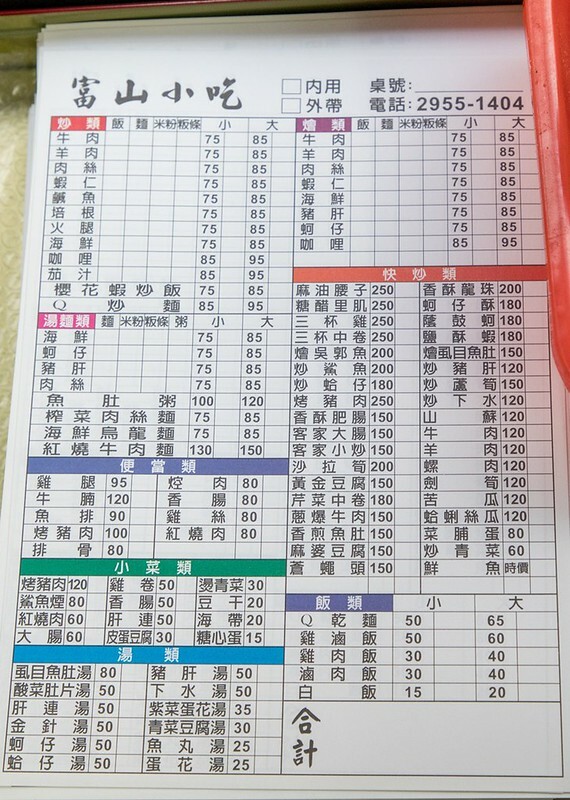 富山小吃
□內用 桌號:
□外帶 電話:2955-1404
炒類 飯 麵 米粉 粄條 小 大
牛肉 75 85
羊肉 75 85
肉絲 75 85
蝦仁 75 85
鹹魚 75 85
培根 75 85
火腿 75 85
海鮮 75 85
咖哩 85 95
茄汁 85 95
櫻花蝦炒飯 75 85
Q炒麵 85 95
湯麵類 麵 米粉 粄條 粥 小 大
海鮮 75 85
蚵仔 75 85
豬肝 75 85
肉絲 75 85
魚肚粥 100 120
榨菜肉絲麵 75 85
海鮮烏龍麵 75 85
紅燒牛肉麵 130 150
便當類
雞腿 95 焢肉 80
牛腩 120 香腸 80
魚排 90 雞絲 80
烤豬肉 100 紅燒肉 80
排骨 80
小菜類
烤豬肉 120 雞卷 50 燙青菜 30
鯊魚煙 80 香腸 50 豆干 20
紅燒肉 60 肝連 50 海帶 20
大腸 60 皮蛋豆腐 30 糖心蛋 15
湯類
虱目魚肚湯 80 豬肝湯 50
酸菜肚片湯 50 下水湯 50
肝連湯 50 紫菜蛋花湯 35
金針湯 50 青菜豆腐湯 30
蚵仔湯 50 魚丸湯 25
蛤仔湯 50 蛋花湯 25
燴類 飯 麵 米粉 粄條 小 大
牛肉 75 85
羊肉 75 85
肉絲 75 85
蝦仁 75 85
海鮮 75 85
豬肝 75 85
蚵仔 75 85
咖哩 85 95
快炒類
麻油腰子 250 香酥龍珠 200
糖醋里肌 250 蚵仔酥 180
三杯雞 250 蔭鼓蚵 180
三杯中卷 250 鹽酥蝦 180
燴吳郭魚 200 燴虱目魚肚 150
炒鯊魚 200 炒豬肝 120
炒蛤仔 180 炒蘆筍 150
烤豬肉 250 炒下水 120
香酥肥腸 150 山蘇 120
客家大腸 150 牛肉 120
客家小炒 150 羊肉 120
沙拉筍 200 螺肉 120
黃金豆腐 150 劍筍 120
芹菜中卷 180 苦瓜 120
蔥爆牛肉 150 蛤蜊絲瓜 120
香煎魚肚 150 菜脯蛋 80
麻婆豆腐 150 炒青菜 60
蒼蠅頭 150 鮮魚 時價
飯類 小 大
Q乾麵 50 65
雞滷飯 50 60
雞肉飯 30 40
滷肉飯 30 40
白飯 15 20
合計